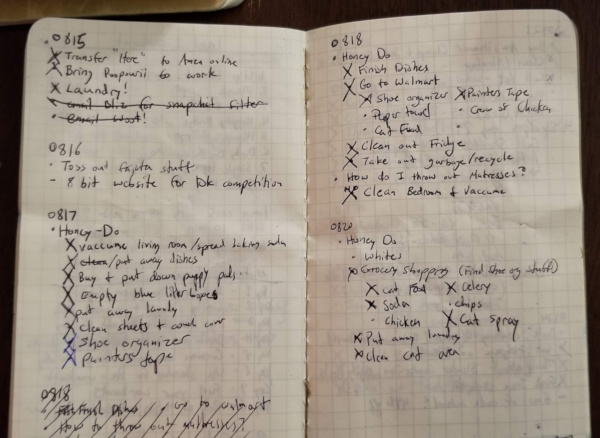 0815
x Transfer "Hoe" to Amea online
x Bring Poopourii to work
x Laundry!
x email Bliz for snapchat filter
• Email Woot!
0816
• Toss out fajita stuff
- 8 bit website for IDK competition
0817
• Honey-Do
x vaccume living room/spread baking soda
x clean/put away dishes
x Buy + put down puppy pads
x Empty blue litter boxes
x put away laundy
x Clean sheets + couch cover
x Shoe organizer
x Painters tape
0818
Finish Dishes • Go to Walmart
How to throw out mattresses?
0818
• Honey Do
x Finish Dishes
x Go to Walmart
x Shoe organizer x Painters Tape
• Paper towel • Cream of Chicken
• Cat Food •
x Clean out Fridge
x Take out garbage/recycle
• How do I throw out Matresses?
x Clean Bedroom + Vaccume
0820
• Honey Do
• Whites
x Grocery Shopping (Find Shoe org stuff)
x Cat Food x Celery
x Soda • chips
• Chicken x Cat spray
x Put away laundry
x Clean cat area